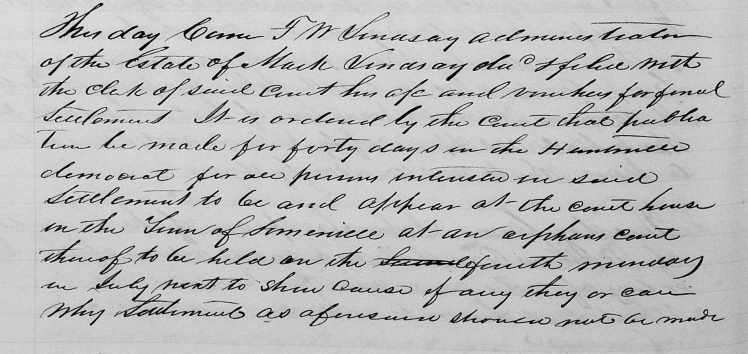 This day Came T W Lindsay administrator
of the Estate of Mark Lindsay decd & filed with
the clerk of said Court his a/c and vouchers for final
Settlement It is ordered by the Court that publica
tion be made for forty days in the Huntsville
democrat for all persons interested in said
Settlement to be and appear at the court house
in the Town of Somerville at an orphans court
thereof to be held on the fourth monday
in July next to show cause if any they or can
Why Settlement as aforesaid should not be made